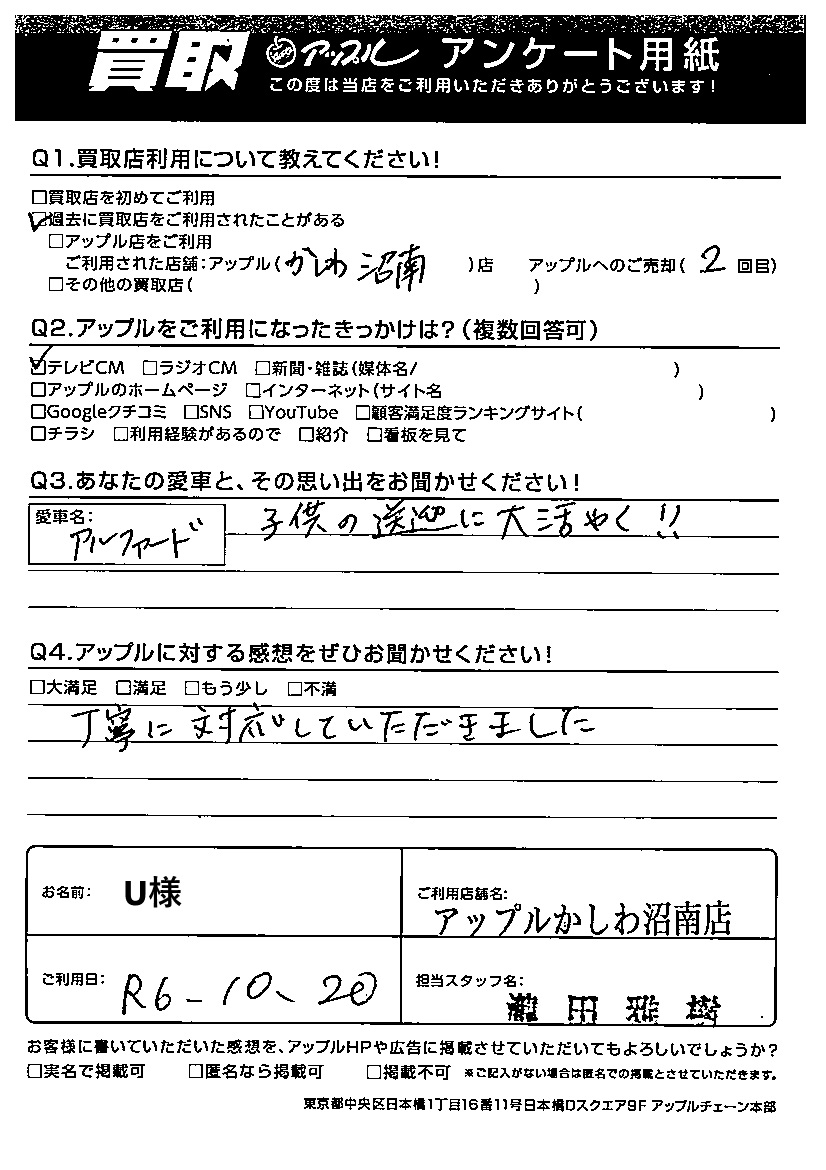 買取 アップル アンケート用紙
この度は当店をご利用いただきありがとうございます!
Q1.買取店利用について教えてください!
□買取店を初めてご利用
☑過去に買取店をご利用されたことがある
□アップル店をご利用
ご利用された店舗:アップル(かしわ沼南)店 アップルへのご売却(2回目)
□その他の買取店( )
Q2.アップルをご利用になったきっかけは?(複数回答可)
☑テレビCM □ラジオCM □新聞・雑誌(媒体名/ )
□アップルのホームページ □インターネット(サイト名 )
□Googleクチコミ □SNS □YouTube □顧客満足度ランキングサイト( )
□チラシ □利用経験があるので □紹介 □看板を見て
Q3.あなたの愛車と、その思い出をお聞かせください!
愛車名:
アルファード
子供の送迎に大活やく!!
Q4.アップルに対する感想をぜひお聞かせください!
□大満足 □満足 □もう少し □不満
丁寧に対応していただきました
お名前: U様
ご利用店舗名:
アップルかしわ沼南店
ご利用日: R6-10、20
担当スタッフ名:
瀧田雅樹
お客様に書いていただいた感想を、アップルHPや広告に掲載させていただいてもよろしいでしょうか?
□実名で掲載可 □匿名なら掲載可 □掲載不可 ※ご記入がない場合は匿名での掲載とさせていただきます。
東京都中央区日本橋1丁目16番11号日本橋Dスクエア9F アップルチェーン本部